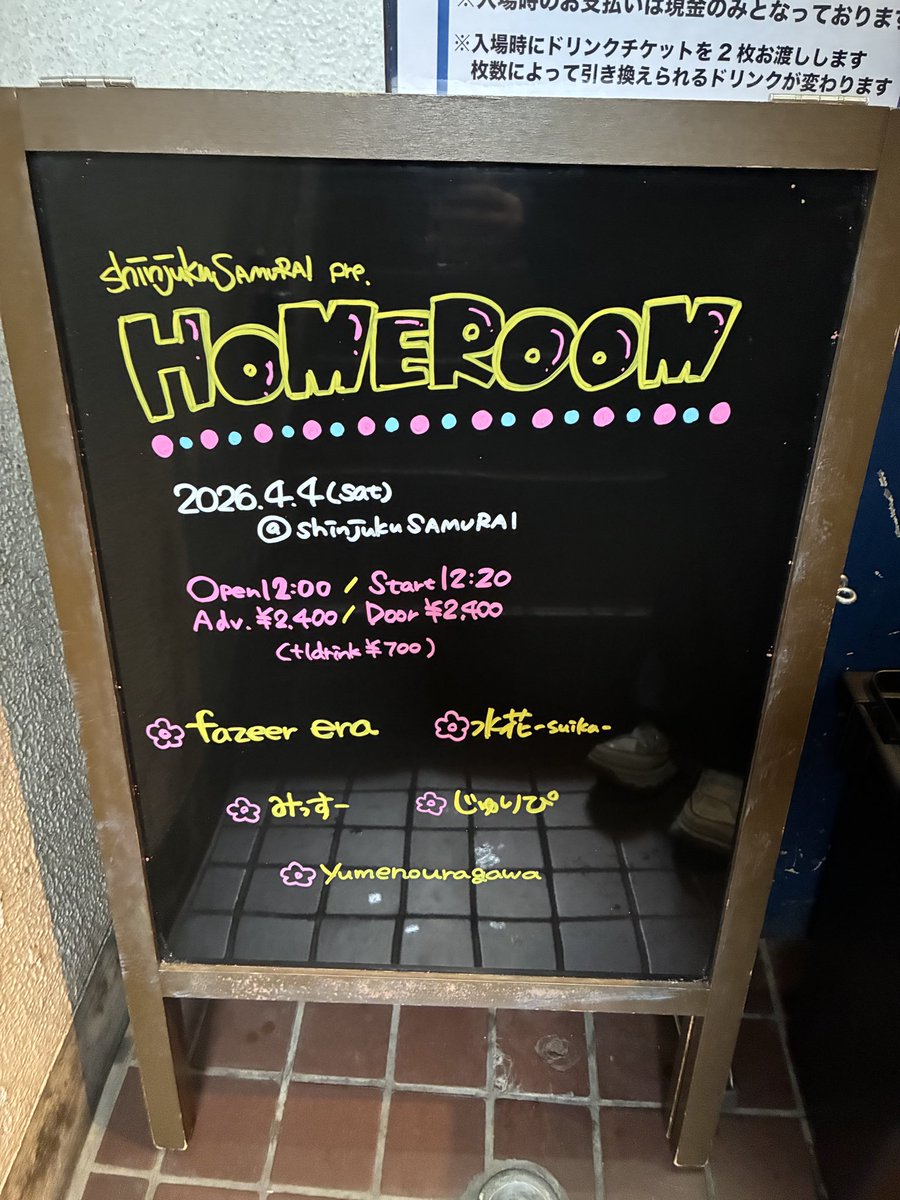 ※入場時のお支払いは現金のみとなっております
※入場時にドリンクチケットを2枚お渡しします
枚数によって引き換えられるドリンクが変わります
shinjuku SAMURAI pre.
HOMEROOM
2026.4.4(sat)
@shinjuku SAMURAI
Open12:00 / Start12:20
Adv.¥2.400 / Door ¥2,400
(+1drink ¥700)
fazeer era
水花-suika-
みっすー
じゅりぴ
Yumenouragawa